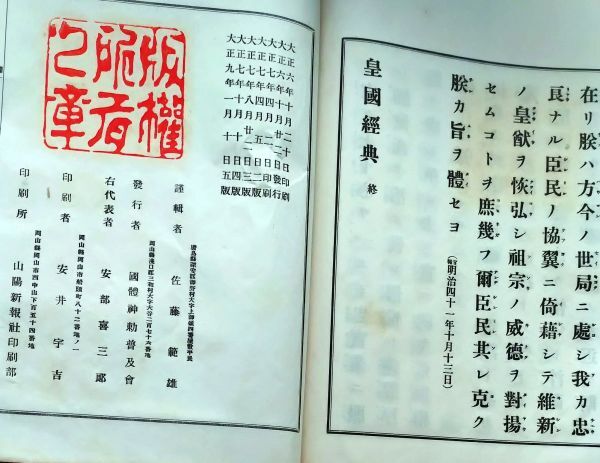 在リ朕ハ方今ノ世局ニ處シ我カ忠
良ナル臣民ノ協翼ニ倚藉シテ維新
ノ皇猷ヲ恢弘シ祖宗ノ威德ヲ對揚
セムコトヲ庶幾フ爾臣民其レ克ク
朕カ旨ヲ體セヨ
(明治四十一年十月十三日)
皇國經典 終
大正六年十月二十日印刷
大正六年十月二十二日發行
大正七年
大正七年四月
大正八年
大正九年一月十五日五版
謹輯者 佐藤範雄
發行者 國體神勅普及會
右代表者 安部喜三郎
岡山縣岡山市船頭町八十二番地ノ一
印刷者 安井宇吉
岡山縣岡山市西中山下百五十四番地
印刷所 山陽新報社印刷部
版權所有之章